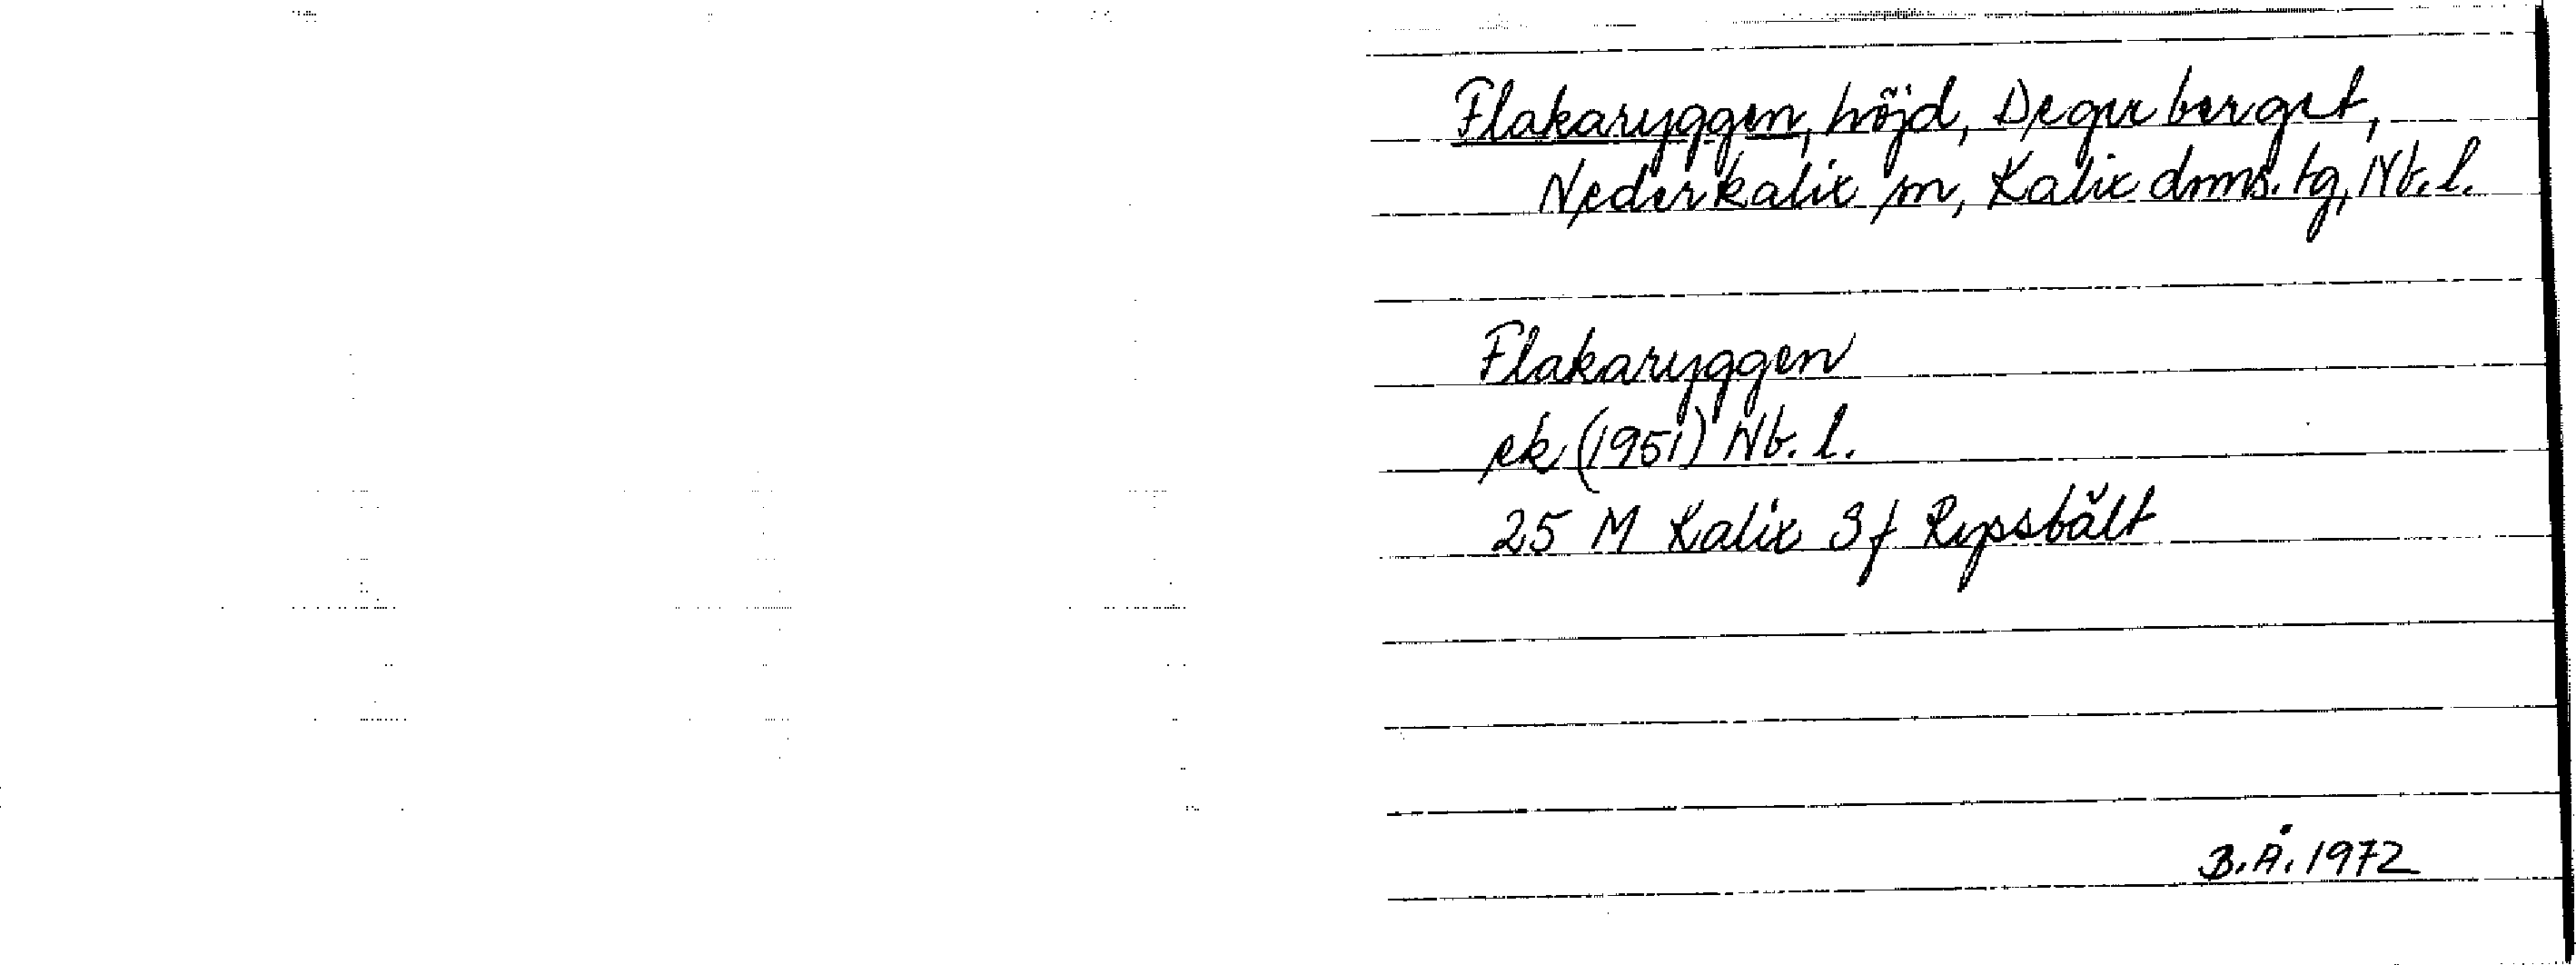 Flakaryggen, höjd, Degerberget,
Nederkalix sn, Kalix dmns. tg, Nb. l.
Flakaryggen
ek (1951) Nb. l.
25 M Kalix 3f Ryssbält
B.Å. 1972